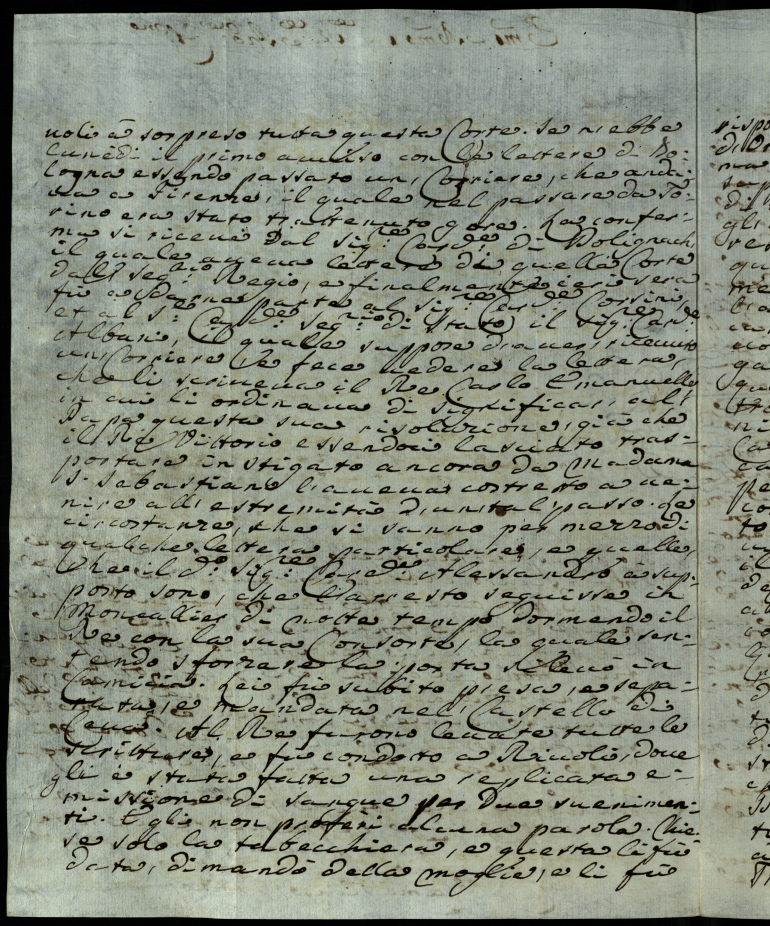 uoli à sorpreso tutta questa Corte. Se n'ebbe
lunedì il primo auuiso con le lettere di Bo-
logna essendo passato un Corriere, che anda-
ua a Firenze, il quale nel passare da To-
rino era stato trattenuto 9 ore. La confer-
ma si riceuè dal Sig.re Card.le di Polignach
il quale aueua lettere di quella Corte
dall Seg.rio Regio, e finalmente ieri sera
fù a darne parte al Sig.re Card.le Corsini,
et al S.r Card.le Seg.rio di Stato il Sig.re Card.le
Albani, il quale suppose d'auer riceuuto
un Corriere e fece uedere la lettera,
che li scriueua il Re Carlo Emanuelle
in cui li ordinaua di significar, al
Papa questa sua risoluzione, già che
il Re Vittorio essendosi lasciato tras-
portare instigato ancora da Madama
S. Sebastiano l'aueua costretto a ue-
nire all'estremità d'un tal passo. Le
circostanze, che si sanno per mezzo di
qualche lettera particolare, e quelle,
che il d.o Sig.re Card.le Alessandro à sup-
posto sono, che l'arresto seguisse in
Moncallier di notte tempo dormendo il
Re con la sua Consorte, la quale sen-
tendo sforzare la porta si leuò in
Camicia. Lei fù subito presa, e sepa-
rata, e mandata nel Castello di
Ceua. Al Re furono leuate tutte le
scritture, e fù condotto a Riuoli, doue
gli è stata fatta una replicata e-
missione di sangue per due suenimen-
ti. Egli non proferì alcuna parola. Chie-
se solo la tabacchiera, e questa li fù
data, dimandò della moglie, e li fù